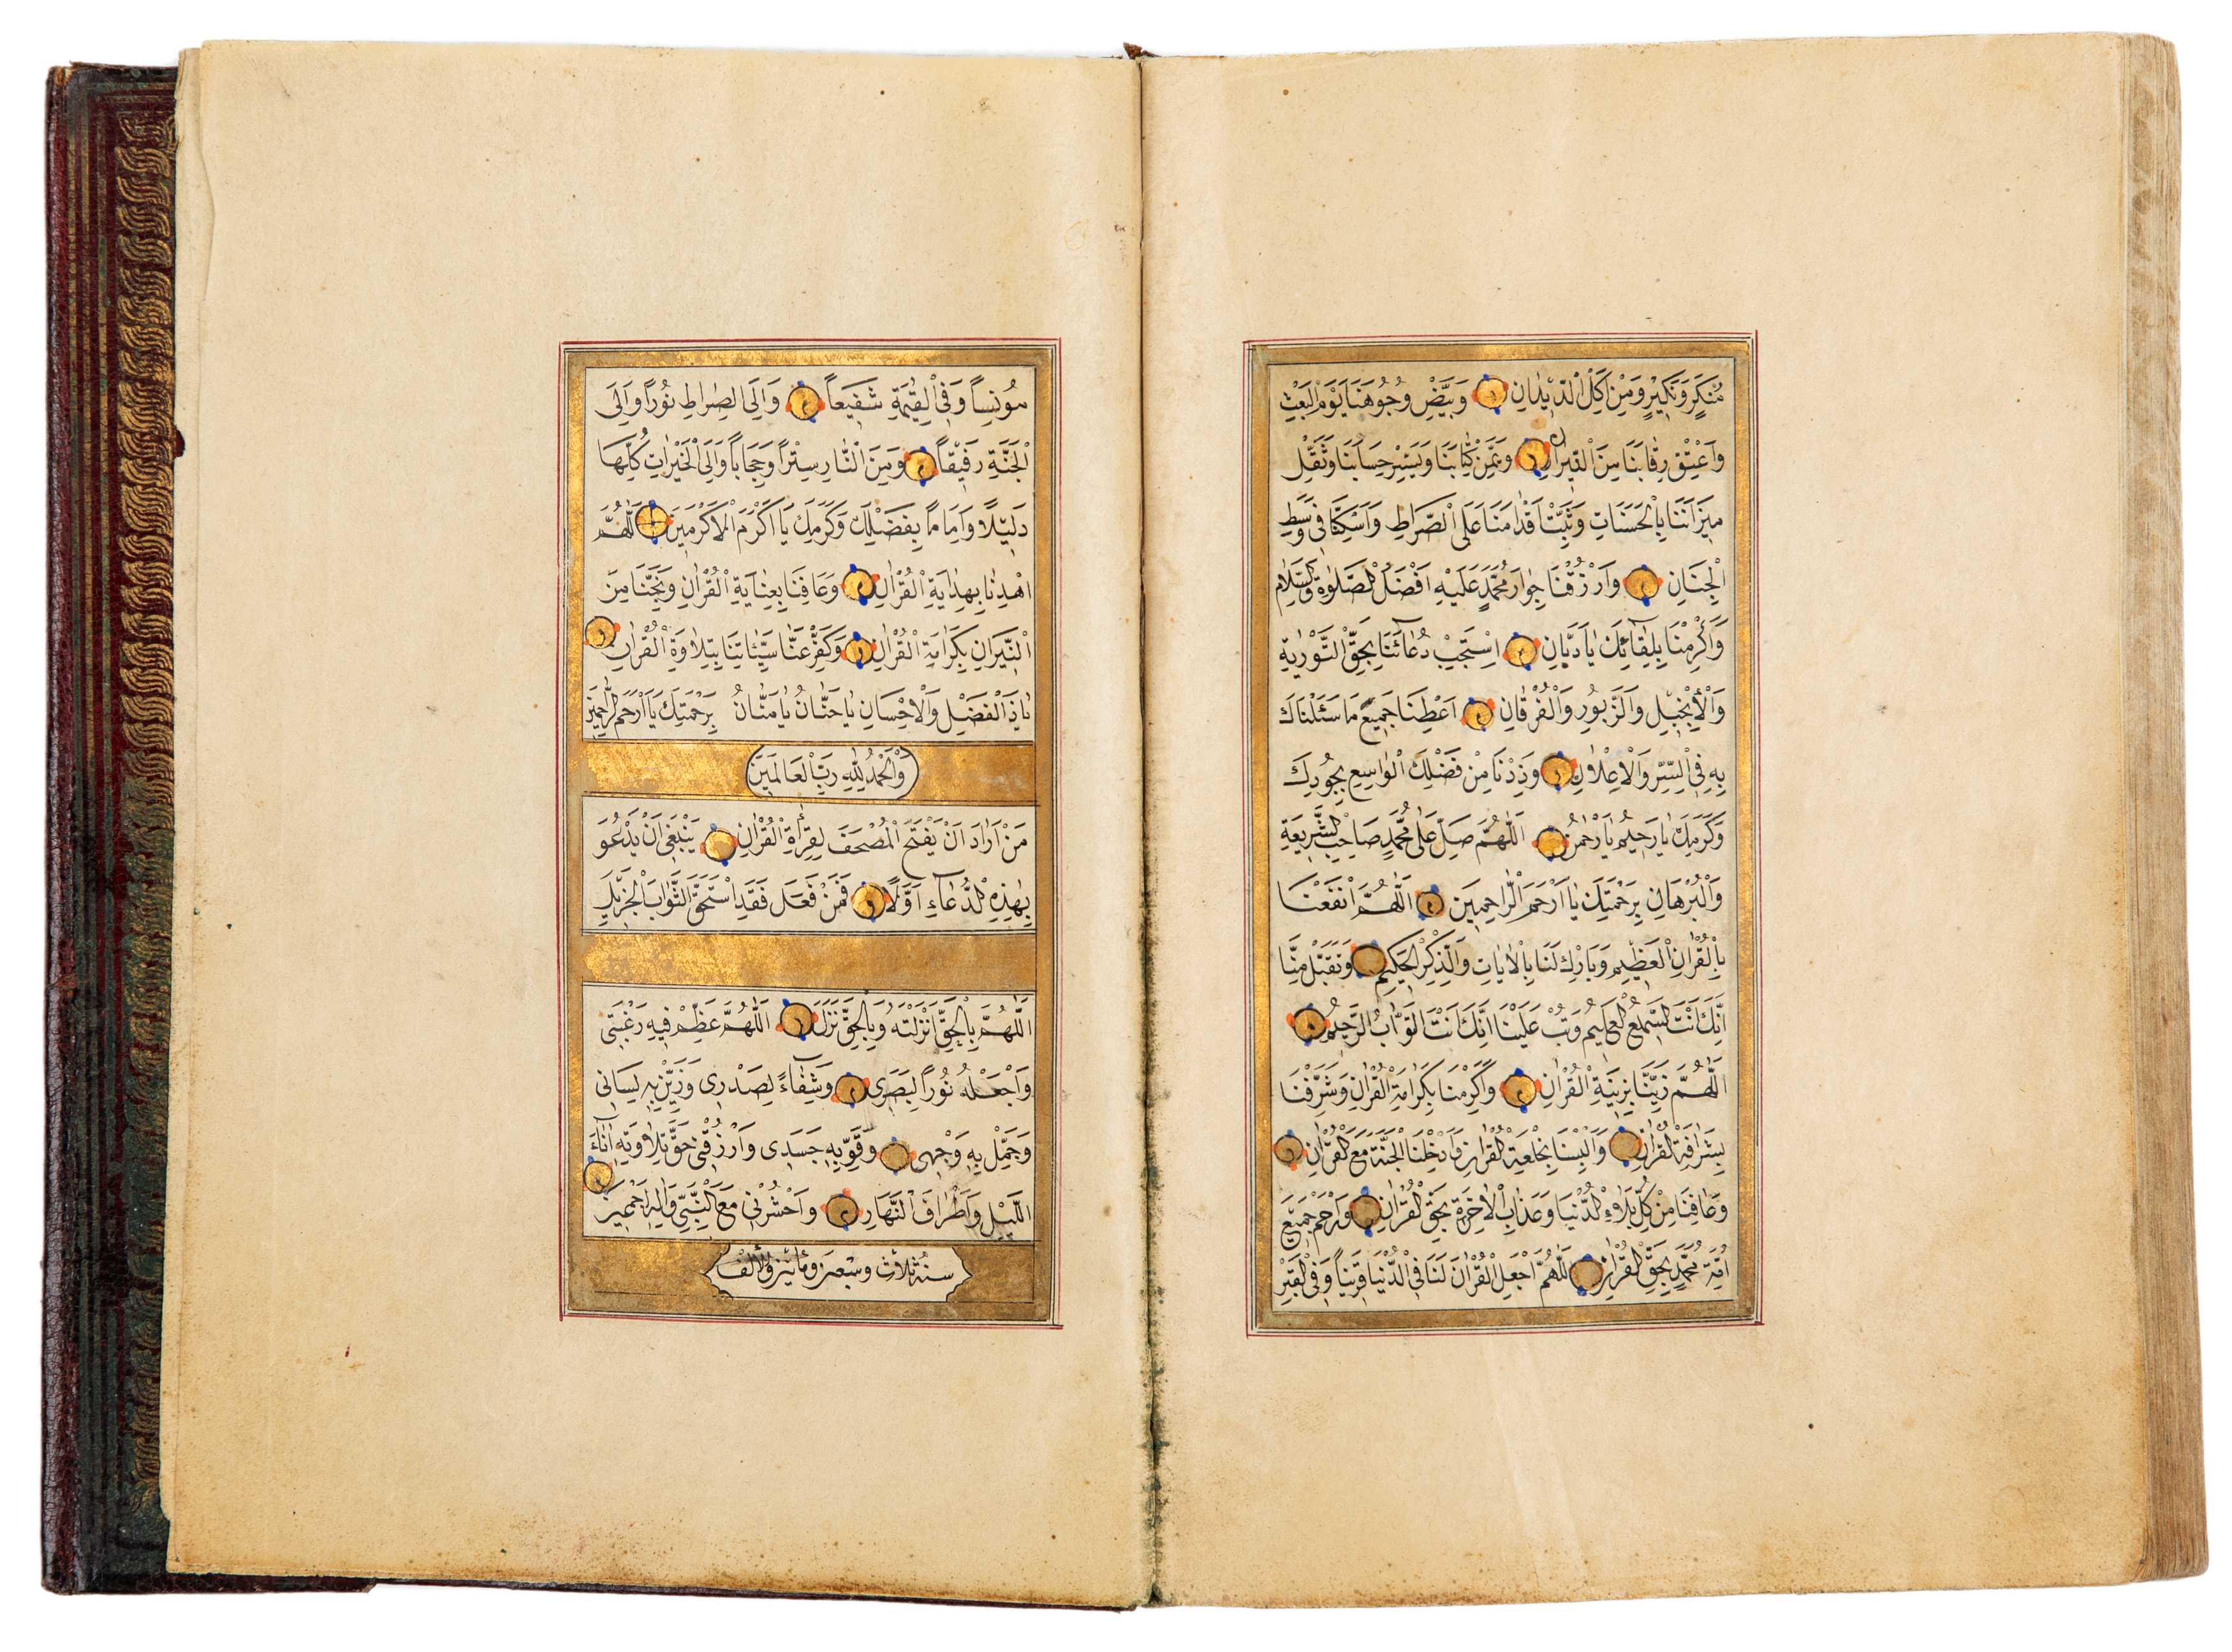 مُنْكَرٍ وَنَكِيْرٍ وَمِنْ اَكْلِ الدّ۪يْدَانِ وَبَيِّضْ وُجُوهَنَا يَوْمَ الْبَعْثِ
وَاَعْتِقْ رِقَابَنَا مِنَ النّ۪يرَانِ وَيَمِّنْ كِتَابَنَا وَيَسِّرْ حِسَابَنَا وَثَقِّلْ
م۪يزَانَنَا بِالْحَسَنَاتِ وَثَبِّتْ اَقْدَامَنَا عَلَى الصِّرَاطِ وَاَسْكِنَّا ف۪ى وَسَطِ
الْجِنَانِ وَارْزُقْنَا جِوَارَ مُحَمَّدٍ عَلَيْهِ اَفْضَلُ الصَّلٰوةِ وَالسَّلَامِ
وَاَكْرِمْنَا بِلِقَائِكَ يَا دَيَّانُ اِسْتَجِبْ دُعَائَنَا بِحَقِّ التَّوْرٰيةِ
وَالْاِنْج۪يلِ وَالزَّبُورِ وَالْفُرْقَانِ اَعْطِنَا جَم۪يعَ مَا سَئَلْنَاكَ
بِهِ فِى السِّرِّ وَالْاِعْلَانِ وَزِدْنَا مِنْ فَضْلِكَ الْوَاسِعِ بِجُودِكَ
وَكَرَمِكَ يَا رَح۪يمُ يَا رَحْمٰنُ اَللّٰهُمَّ صَلِّ عَلٰى مُحَمَّدٍ صَاحِبِ الشَّر۪يعَةِ
وَالْبُرْهَانِ بِرَحْمَتِكَ يَا اَرْحَمَ الرَّاحِم۪ينَ اَللّٰهُمَّ انْفَعْنَا
بِالْقُرْاٰنِ الْعَظ۪يمِ وَبَارِكْ لَنَا بِالْاٰيَاتِ وَالذِّكْرِ الْحَك۪يمِ وَتَقَبَّلْ مِنَّا
اِنَّكَ اَنْتَ السَّم۪يعُ الْعَل۪يمُ وَتُبْ عَلَيْنَا اِنَّكَ اَنْتَ التَّوَّابُ الرَّح۪يمُ
اَللّٰهُمَّ زَيِّنَّا بِز۪ينَةِ الْقُرْاٰنِ وَاَكْرِمْنَا بِكَرَامَةِ الْقُرْاٰنِ وَشَرِّفْنَا
بِشَرَافَةِ الْقُرْاٰنِ وَاَلْبِسْنَا بِخِلْعَةِ الْقُرْاٰنِ وَاَدْخِلْنَا الْجَنَّةَ مَعَ الْقُرْاٰنِ
وَعَافِنَا مِنْ كُلِّ بَلَاءِ الدُّنْيَا وَعَذَابِ الْاٰخِرَةِ بِحَقِّ الْقُرْاٰنِ وَارْحَمْ جَم۪يعَ
اُمَّةِ مُحَمَّدٍ بِحَقِّ الْقُرْاٰنِ اَللّٰهُمَّ اجْعَلِ الْقُرْاٰنَ لَنَا فِى الدُّنْيَا قَر۪يناً وَفِى الْقَبْرِ
مُونِساً وَفِى الْقِيٰمَةِ شَف۪يعاً وَاِلَى الصِّرَاطِ نُوراً وَاِلَى
الْجَنَّةِ رَف۪يقاً وَمِنَ النَّارِ سِتْراً وَحِجَاباً وَاِلَى الْخَيْرَاتِ كُلِّهَا
دَل۪يلاً وَاِمَاماً بِفَضْلِكَ وَكَرَمِكَ يَا اَكْرَمَ الْاَكْرَم۪ينَ اَللّٰهُمَّ
اهْدِنَا بِهِدَايَةِ الْقُرْاٰنِ وَعَافِنَا بِعِنَايَةِ الْقُرْاٰنِ وَنَجِّنَا مِنَ
النّ۪يرَانِ بِكَرَامَةِ الْقُرْاٰنِ وَكَفِّرْ عَنَّا سَيِّئَاتِنَا بِتِلَاوَةِ الْقُرْاٰنِ
يَا ذَا الْفَضْلِ وَالْاِحْسَانِ يَا حَنَّانُ يَا مَنَّانُ بِرَحْمَتِكَ يَا اَرْحَمَ الرَّاحِم۪ينَ
وَالْحَمْدُ لِلّٰهِ رَبِّ الْعَالَم۪ينَ
مَنْ اَرَادَ اَنْ يَفْتَحَ الْمُصْحَفَ لِقِرَاءَةِ الْقُرْاٰنِ يَنْبَغ۪ى اَنْ يَدْعُوَ
بِهٰذِهِ الدُّعَاءِ اَوَّلاً فَمَنْ فَعَلَ فَقَدِ اسْتَحَقَّ الثَّوَابَ الْجَز۪يلَ
اَللّٰهُمَّ بِالْحَقِّ اَنْزَلْتَهُ وَبِالْحَقِّ نَزَلَ اَللّٰهُمَّ عَظِّمْ ف۪يهِ رَغْبَت۪ى
وَاجْعَلْهُ نُوراً لِبَصَر۪ى وَشِفَاءً لِصَدْر۪ى وَزَيِّنْ بِهِ لِسَان۪ى
وَجَمِّلْ بِهِ وَجْه۪ى وَقَوِّ بِهِ جَسَد۪ى وَارْزُقْن۪ى حَقَّ تِلَاوَتِهِ اٰنَاءَ
اللَّيْلِ وَاَطْرَافَ النَّهَارِ وَاحْشُرْن۪ى مَعَ النَّبِىِّ وَاٰلِهِ اَجْمَع۪ينَ
سنة ثلاث وسبعين ومائتين والألف